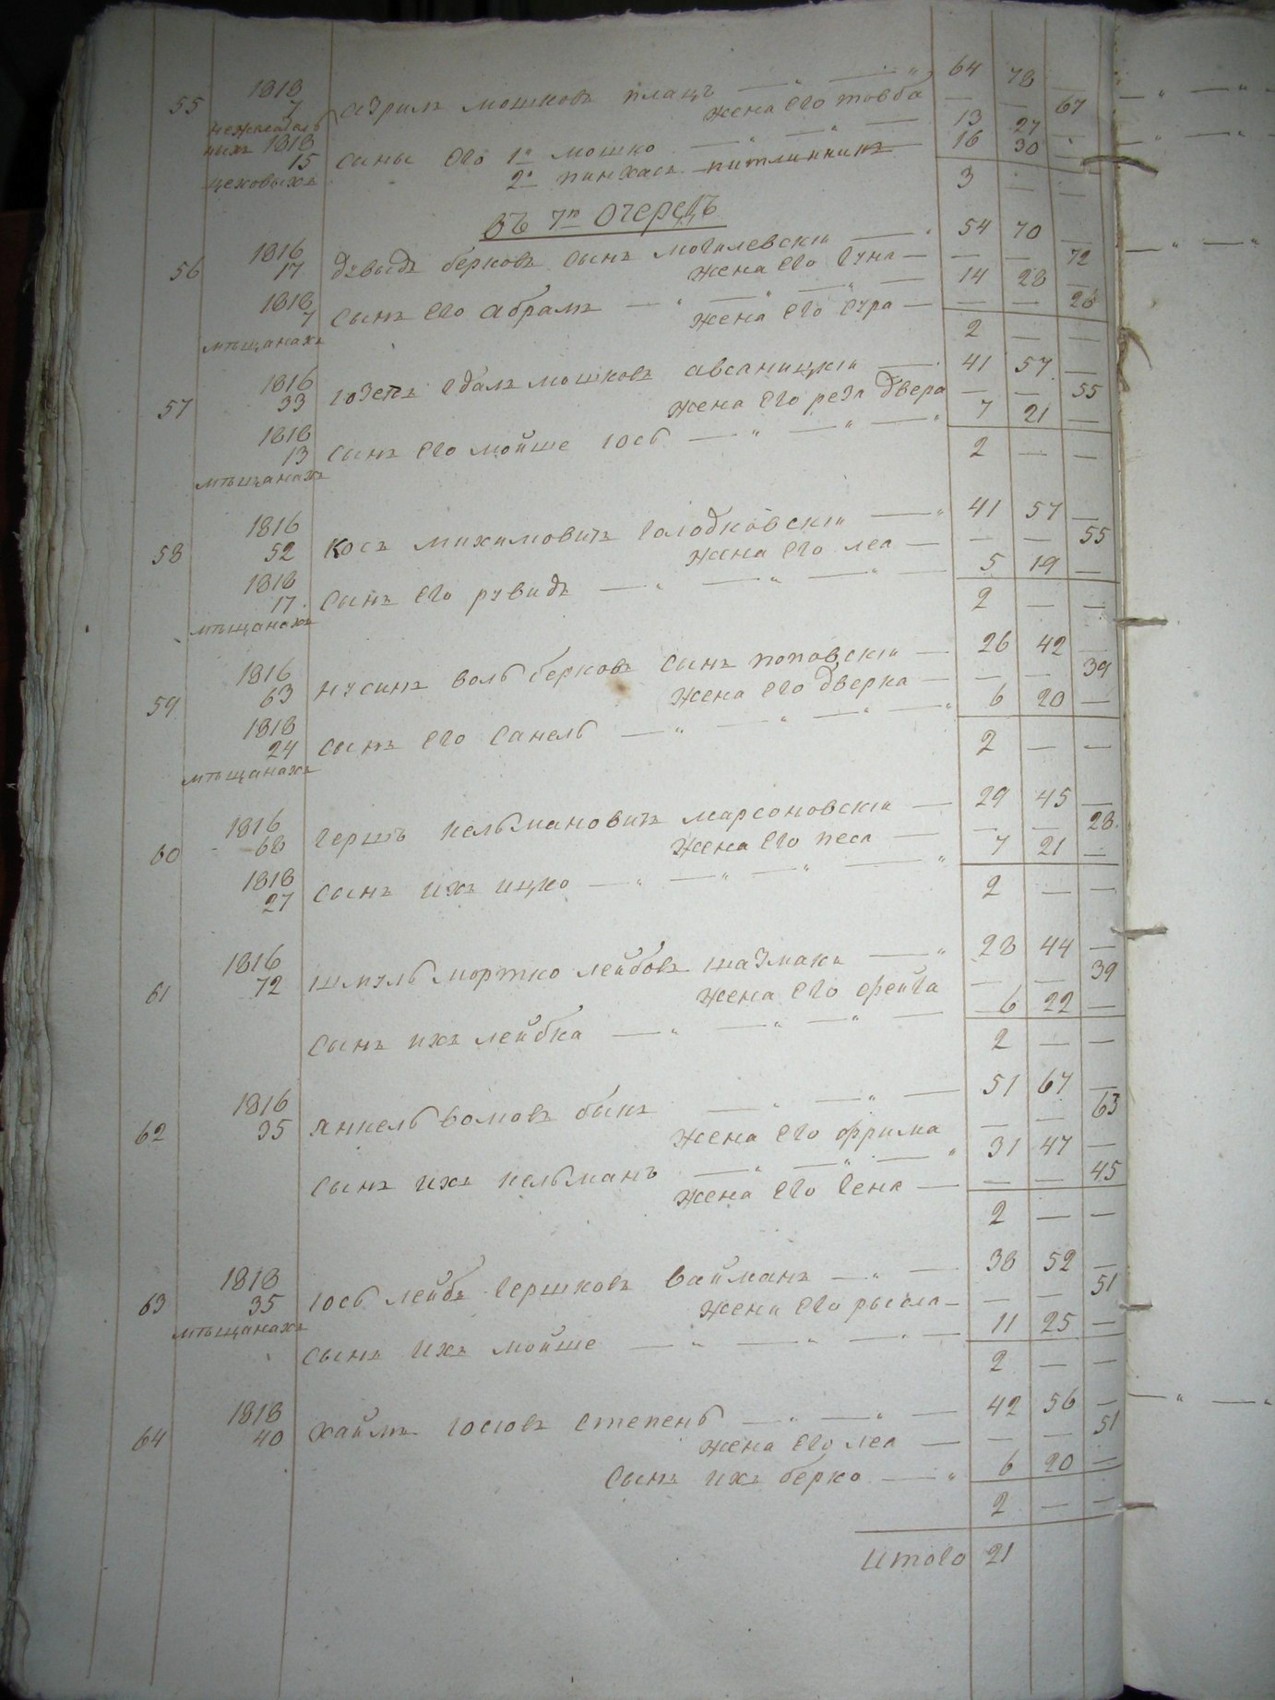 1818 64 78
55 7 Азрилъ Мошковъ Плацъ — " — "
жена его товба — — 67
1818 13 27 —
15 сыны его 1й мошко — " —
2й пинхасъ 16 30 —
цеховыхъ 3 — —
Въ 7й Очередь
1816 54 70 —
56 17 Давыдъ берковъ сынъ могилевскій — "
жена его хуна — — — 72
1818 14 28 —
7 сынъ его абрамъ — " — " — " —
жена его сура — — — 26
мѣщанахъ 2 — —
1816 41 57 —
57 33 Іозепъ Едалъ мошковъ —
жена его рези двера — — 55
1818 7 21 —
13 сынъ его мойше Іось — " — " — "
мѣщанахъ 2 — —
1816 41 57 —
58 52 Косъ Голодковскій — "
жена его леа — — — 55
1818 5 19 —
17 сынъ его рувидъ — " — " — " —
мѣщанахъ 2 — —
1816 26 42 —
59 63 нусинъ воль берковъ сынъ поповскій —
жена его дверка — — — 39
1818 6 20 —
24 сынъ его Санель — " — " — " — "
мѣщанахъ 2 — —
1816 29 45 —
60 68 Гершъ кельмановичъ марсоновскій —
жена его песа — — — 28
1818 7 21 —
27 сынъ ихъ ицко — " — " — " — "
2 — —
1816 28 44 —
61 72 Шмуль мортко лейбовъ шазмаки — "
жена его фейга — — 39
сынъ ихъ лейбка — " — " — " — 6 22 —
2 — —
1816 51 67 —
62 35 Янкель волковъ быкъ — " — " —
жена его фрима — — 63
сынъ ихъ кельманъ — " — " — " 31 47 —
жена его Гена — — — 45
2 — —
1818 38 52 —
63 35 Іось лейбъ Гершковъ вайманъ — " —
мѣщанахъ жена его рысла — — — 51
сынъ ихъ мойше — " — " — " — 11 25 —
2 — —
1818 42 56 —
64 40 Хаймъ Іосіовъ степень — " — " —
жена его леа — — — 51
сынъ ихъ берко — " 6 20 —
2 — —
Итого 21